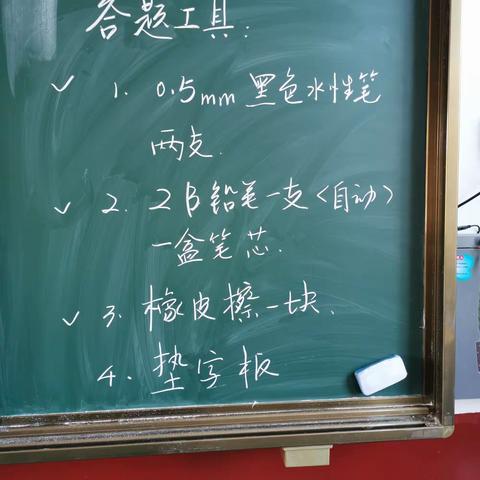 答题工具:
✓ 1. 0.5mm 黑色水性笔
两支.
✓ 2. 2B铅笔一支<自动>
一盒笔芯.
✓ 3. 橡皮擦一块.
4. 垫字板